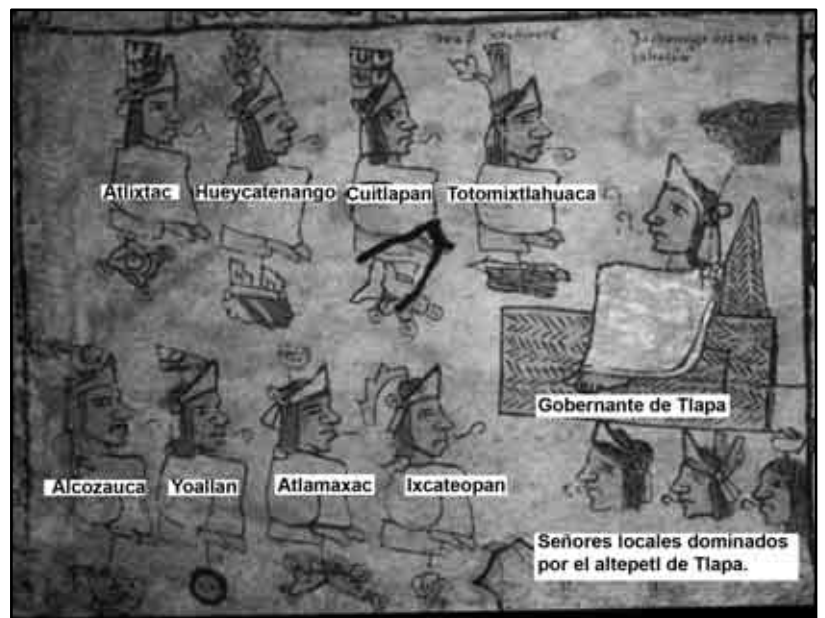 Atlixtac Hueycatenango Cuitlapan Totomixtlahuaca
Gobernante de Tlapa
Alcozauca Yoallan Atlamaxac Ixcateopan
Señores locales dominados
por el altepetl de Tlapa.